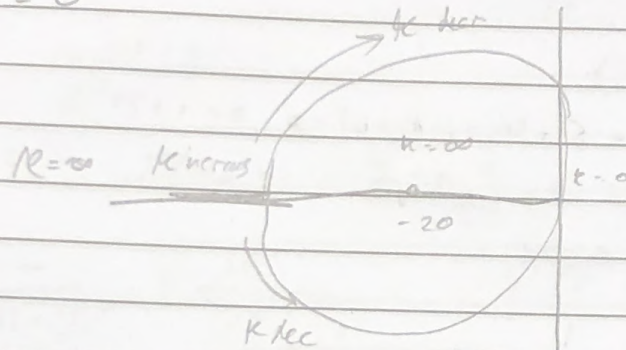 K decr
K = ∞
K = ∞ K increas
-20
K dec